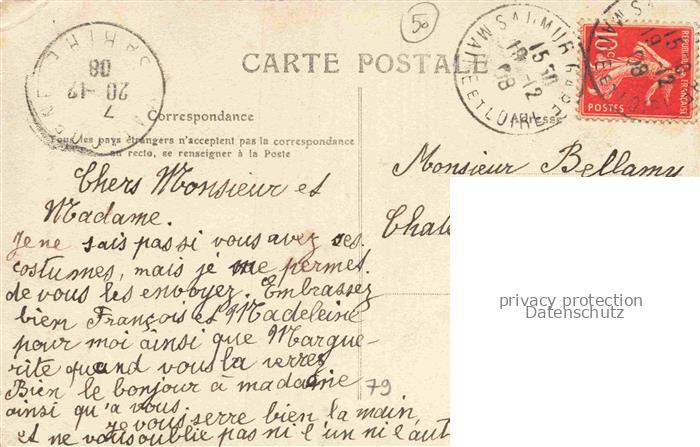 50
CARTE POSTALE
SAUMUR GARE
15 30
19 -12
08
MAINE ET LOIRE
SARTHE
7
20-12
08
10c
REPUBLIQUE FRANÇAISE
POSTES
Correspondance
Tous les pays étrangers n'acceptent pas la correspondance
au recto, se renseigner à la Poste
Adresse
Monsieur Bellamy
Chate
Chers Monsieur et
Madame.
Je ne sais pas si vous avez ces
costumes, mais je me permet
de vous les envoyez. Embrassez
bien François et Madeleine
pour moi ainsi que Margue-
rite quand vous la verrez
Bien le bonjour à madame
ainsi qu'a vous.
Je vous serre bien la main
et ne vous oublie pas ni l'un ni l'aut
79
privacy protection
Datenschutz